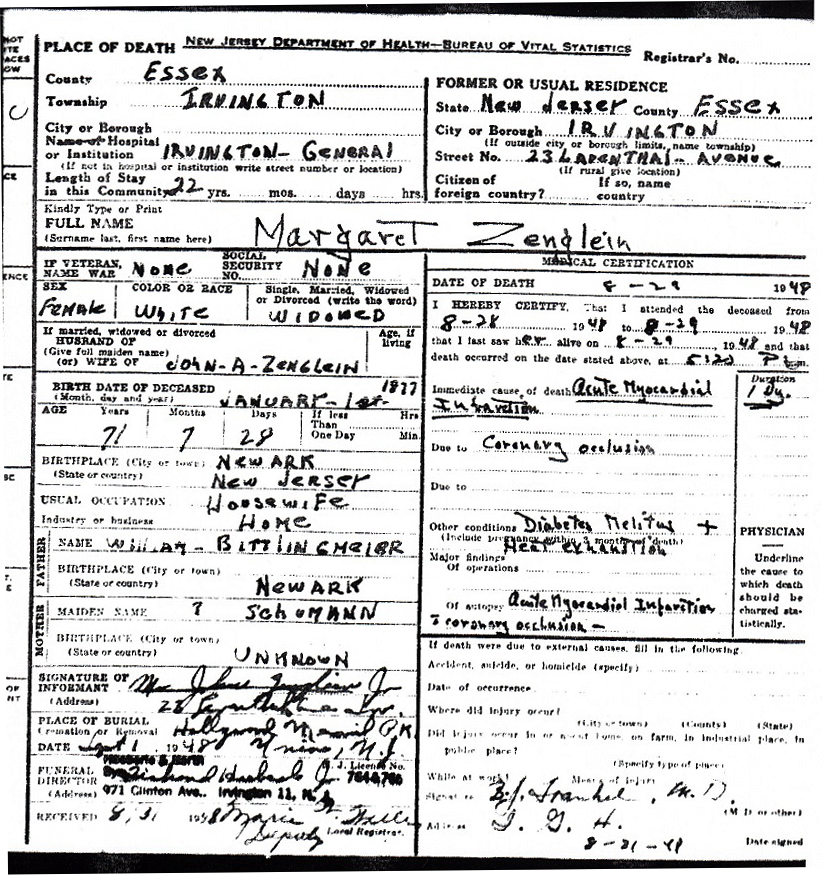 NEW JERSEY DEPARTMENT OF HEALTH—BUREAU OF VITAL STATISTICS
Registrar's No.
PLACE OF DEATH
County Essex
Township IRVINGTON
City or Borough
Name of Hospital
or Institution IRVINGTON- GENERAl
(If not in hospital or institution write street number or location)
Length of Stay
in this Community 22 yrs. mos. days hrs.
FORMER OR USUAL RESIDENCE
State New Jersey County Essex
City or Borough IRVINGTON
(If outside city or borough limits, name township)
Street No. 23 Avenue
(If rural give location)
Citizen of If so, name
foreign country? country
Kindly Type or Print
FULL NAME
(Surname last, first name here) Margaret Zenglein
IF VETERAN, NAME WAR None
SOCIAL SECURITY NO. None
SEX Female
COLOR OR RACE White
Single, Married, Widowed
or Divorced (write the word) WIDOWED
If married, widowed or divorced Age, if
HUSBAND OF living
(Give full maiden name)
(or) WIFE OF JOHN-A-ZENGLEIN
BIRTH DATE OF DECEASED 1877
(Month, day and year) JANUARY-1st-
AGE Years Months Days If less Hrs
Than
One Day Min.
71 7 28
BIRTHPLACE (City or town) NEWARK
(State or country) New Jersey
USUAL OCCUPATION Housewife
Industry or business Home
FATHER
NAME William- BITTLINGMEIER
BIRTHPLACE (City or town)
(State or country) NEWARK
MOTHER
MAIDEN NAME ? SCHUMANN
BIRTHPLACE (City or town)
(State or country) UNKNOWN
SIGNATURE OF
INFORMANT Jr
(Address)
PLACE OF BURIAL
Cremation or Removal Hollywood Memorial Pk.
DATE 1 1948 Union, N.J.
N. J. License No.
FUNERAL
DIRECTOR
(Address) 971 Clinton Ave., Irvington 11, N. J.
RECEIVED 8/31 1948 Marie
Deputy Local Registrar.
MEDICAL CERTIFICATION
DATE OF DEATH 8-29 1948
I HEREBY CERTIFY, That I attended the deceased from
8-28 1948 to 8-29 1948
that I last saw her alive on 8-29 1948 and that
death occurred on the date stated above, at 5:20 P m.
Immediate cause of death Acute Myocardial
Infarction
Duration
1 Dy.
Due to Coronary occlusion
Due to
Other conditions Diabetes Melitus +
(Include pregnancy within 3 months of death)
Heat exhaustion
Major findings
Of operations
Of autopsy Acute Myocardial Infarction
coronary occlusion -
PHYSICIAN
Underline
the cause to
which death
should be
charged sta-
tistically.
If death were due to external causes, fill in the following.
Accident, suicide, or homicide (specify)
Date of occurrence
Where did injury occur?
(City or town) (County) (State)
Did injury occur in or about home, on farm, in industrial place, in
public place?
(Specify type of place)
While at work? Means of injury
Signed M.D.
(M D or other)
Address I. G. H.
Date signed
8-31-48